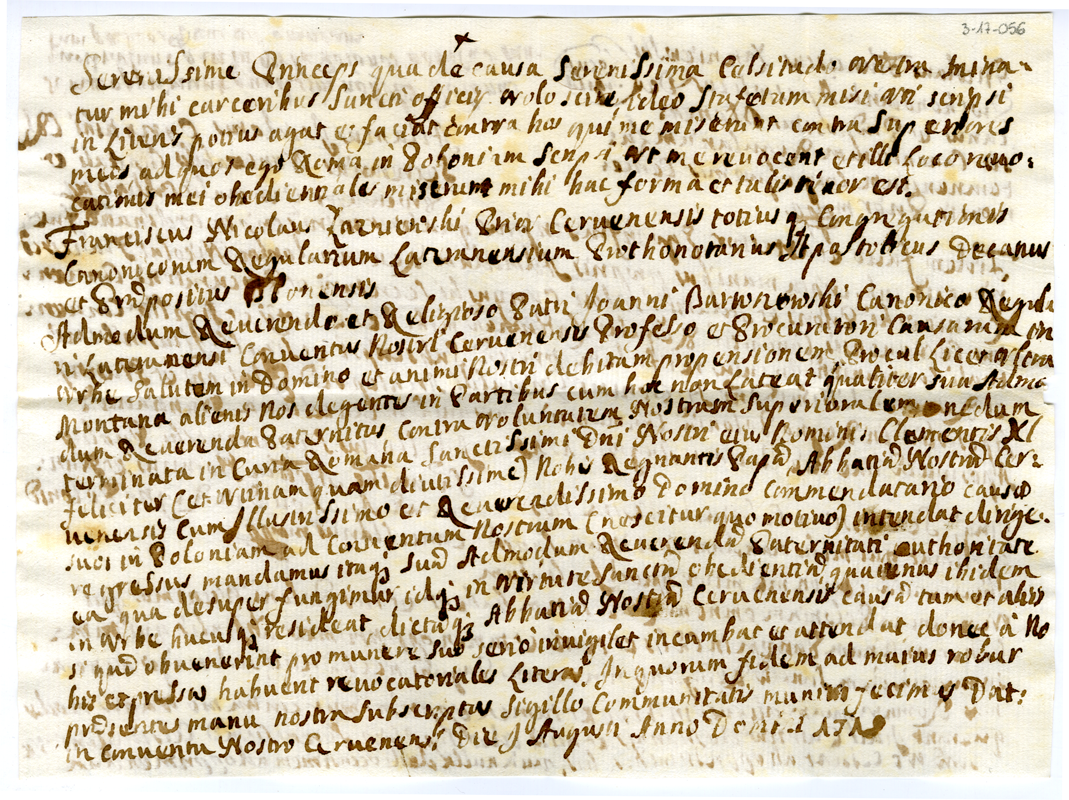 3-17-056
Serenissime Princeps qua de causa Serenissima Celsitudo vestra mina-
tur mihi carceribus Sancti officij volo scire ideo Stafetam misi et scripsi
in potius agat et faciat contra hos qui me miserunt contra Superiores
meos ad quos ego Roma in Poloniam Scripsi ut me revocent et illi Loco revo:
cationis mei obedientiales miserunt mihi hac forma et talis tenor est.
Franciscus Nicolaus Zarnienski Prior Cervenensis totius q3 Congregationis
Canonicorum Regularium Lateranensium Prothonotarius Apostolicus Decanus
et Praepositus Plonensis
Admodum Reverendo et Religioso Patri Joanni Bartoszewski Canonico Regula
ri Lateranensi Conventus Nostri Cervenensis Professo et Procuratori Causarum in
Urbe Salutem in Domino et animi Nostri debitam propensionem Procul Licet
Montana alienis Nos degentes in Partibus cum hoc non Lateat qualiter sua Admo
dum Reverenda Paternitas contra voluntatem Nostram Superioralem nedum
terminata in Curia Romana Sanctissimi Dni Nostri eius Nominis Clementis XI
feliciter (et utinam quam diutissime) Nobis Regnantis Papae Abbatiae Nostrae Cer:
venensis cum Illustrissimo et Reverendissimo Domino Commendatario causa
suci in Poloniam ad Conventum Nostrum (nescitur quo motivo) intendat dirige.
regressus mandamus itaq3 Suae Admodum Reverendae Paternitati authoritate
ea qua desuper fungimur idq3 in virtute Sanctae obedientiae quatenus ibidem
in Urbe hucusq3 resideat dictaeq3 Abbatiae Nostrae Cervenensis causae tum et aliis
si quae obvenerint pro munere suo serio invigilet incumbat et attendat donec à No
bis expressas habuerit revocatoriales Literas. In quorum fidem ad maius robur
praesentes manu nostra Subscriptas Sigillo Communitatis muniri fecimus Dat:
in Conventu Nostro Cervenensi Die 9 Augusti Anno Domi